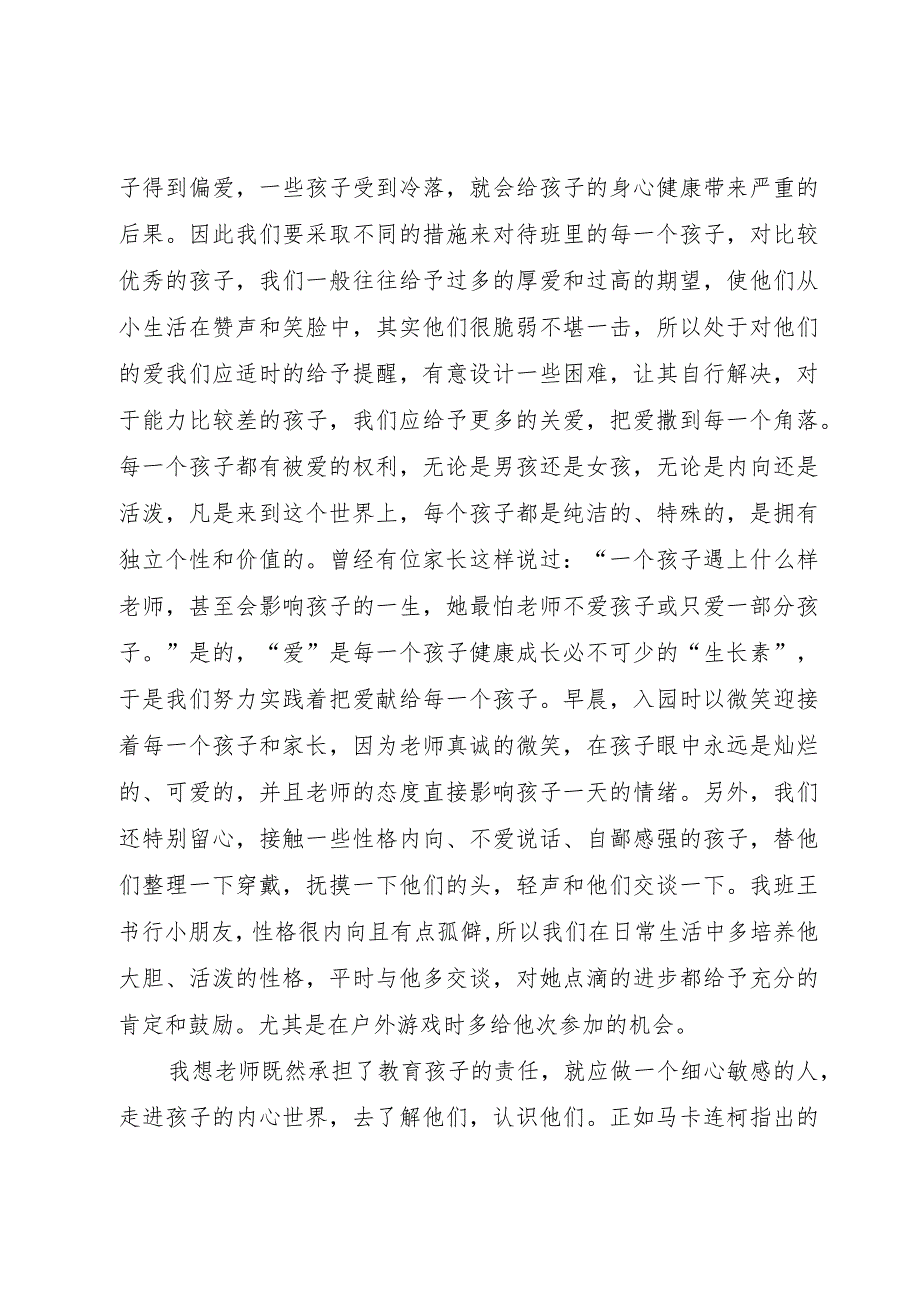 子得到偏爱，一些孩子受到冷落，就会给孩子的身心健康带来严重的
后果。因此我们要采取不同的措施来对待班里的每一个孩子，对比较
优秀的孩子，我们一般往往给予过多的厚爱和过高的期望，使他们从
小生活在赞声和笑脸中，其实他们很脆弱不堪一击，所以处于对他们
的爱我们应适时的给予提醒，有意设计一些困难，让其自行解决，对
于能力比较差的孩子，我们应给予更多的关爱，把爱撒到每一个角落。
每一个孩子都有被爱的权利，无论是男孩还是女孩，无论是内向还是
活泼，凡是来到这个世界上，每个孩子都是纯洁的、特殊的，是拥有
独立个性和价值的。曾经有位家长这样说过：“一个孩子遇上什么样
老师，甚至会影响孩子的一生，她最怕老师不爱孩子或只爱一部分孩
子。”是的，“爱”是每一个孩子健康成长必不可少的“生长素”，
于是我们努力实践着把爱献给每一个孩子。早晨，入园时以微笑迎接
着每一个孩子和家长，因为老师真诚的微笑，在孩子眼中永远是灿烂
的、可爱的，并且老师的态度直接影响孩子一天的情绪。另外，我们
还特别留心，接触一些性格内向、不爱说话、自鄙感强的孩子，替他
们整理一下穿戴，抚摸一下他们的头，轻声和他们交谈一下。我班王
书行小朋友，性格很内向且有点孤僻,所以我们在日常生活中多培养他
大胆、活泼的性格，平时与他多交谈，对她点滴的进步都给予充分的
肯定和鼓励。尤其是在户外游戏时多给他次参加的机会。
我想老师既然承担了教育孩子的责任，就应做一个细心敏感的人，
走进孩子的内心世界，去了解他们，认识他们。正如马卡连柯指出的